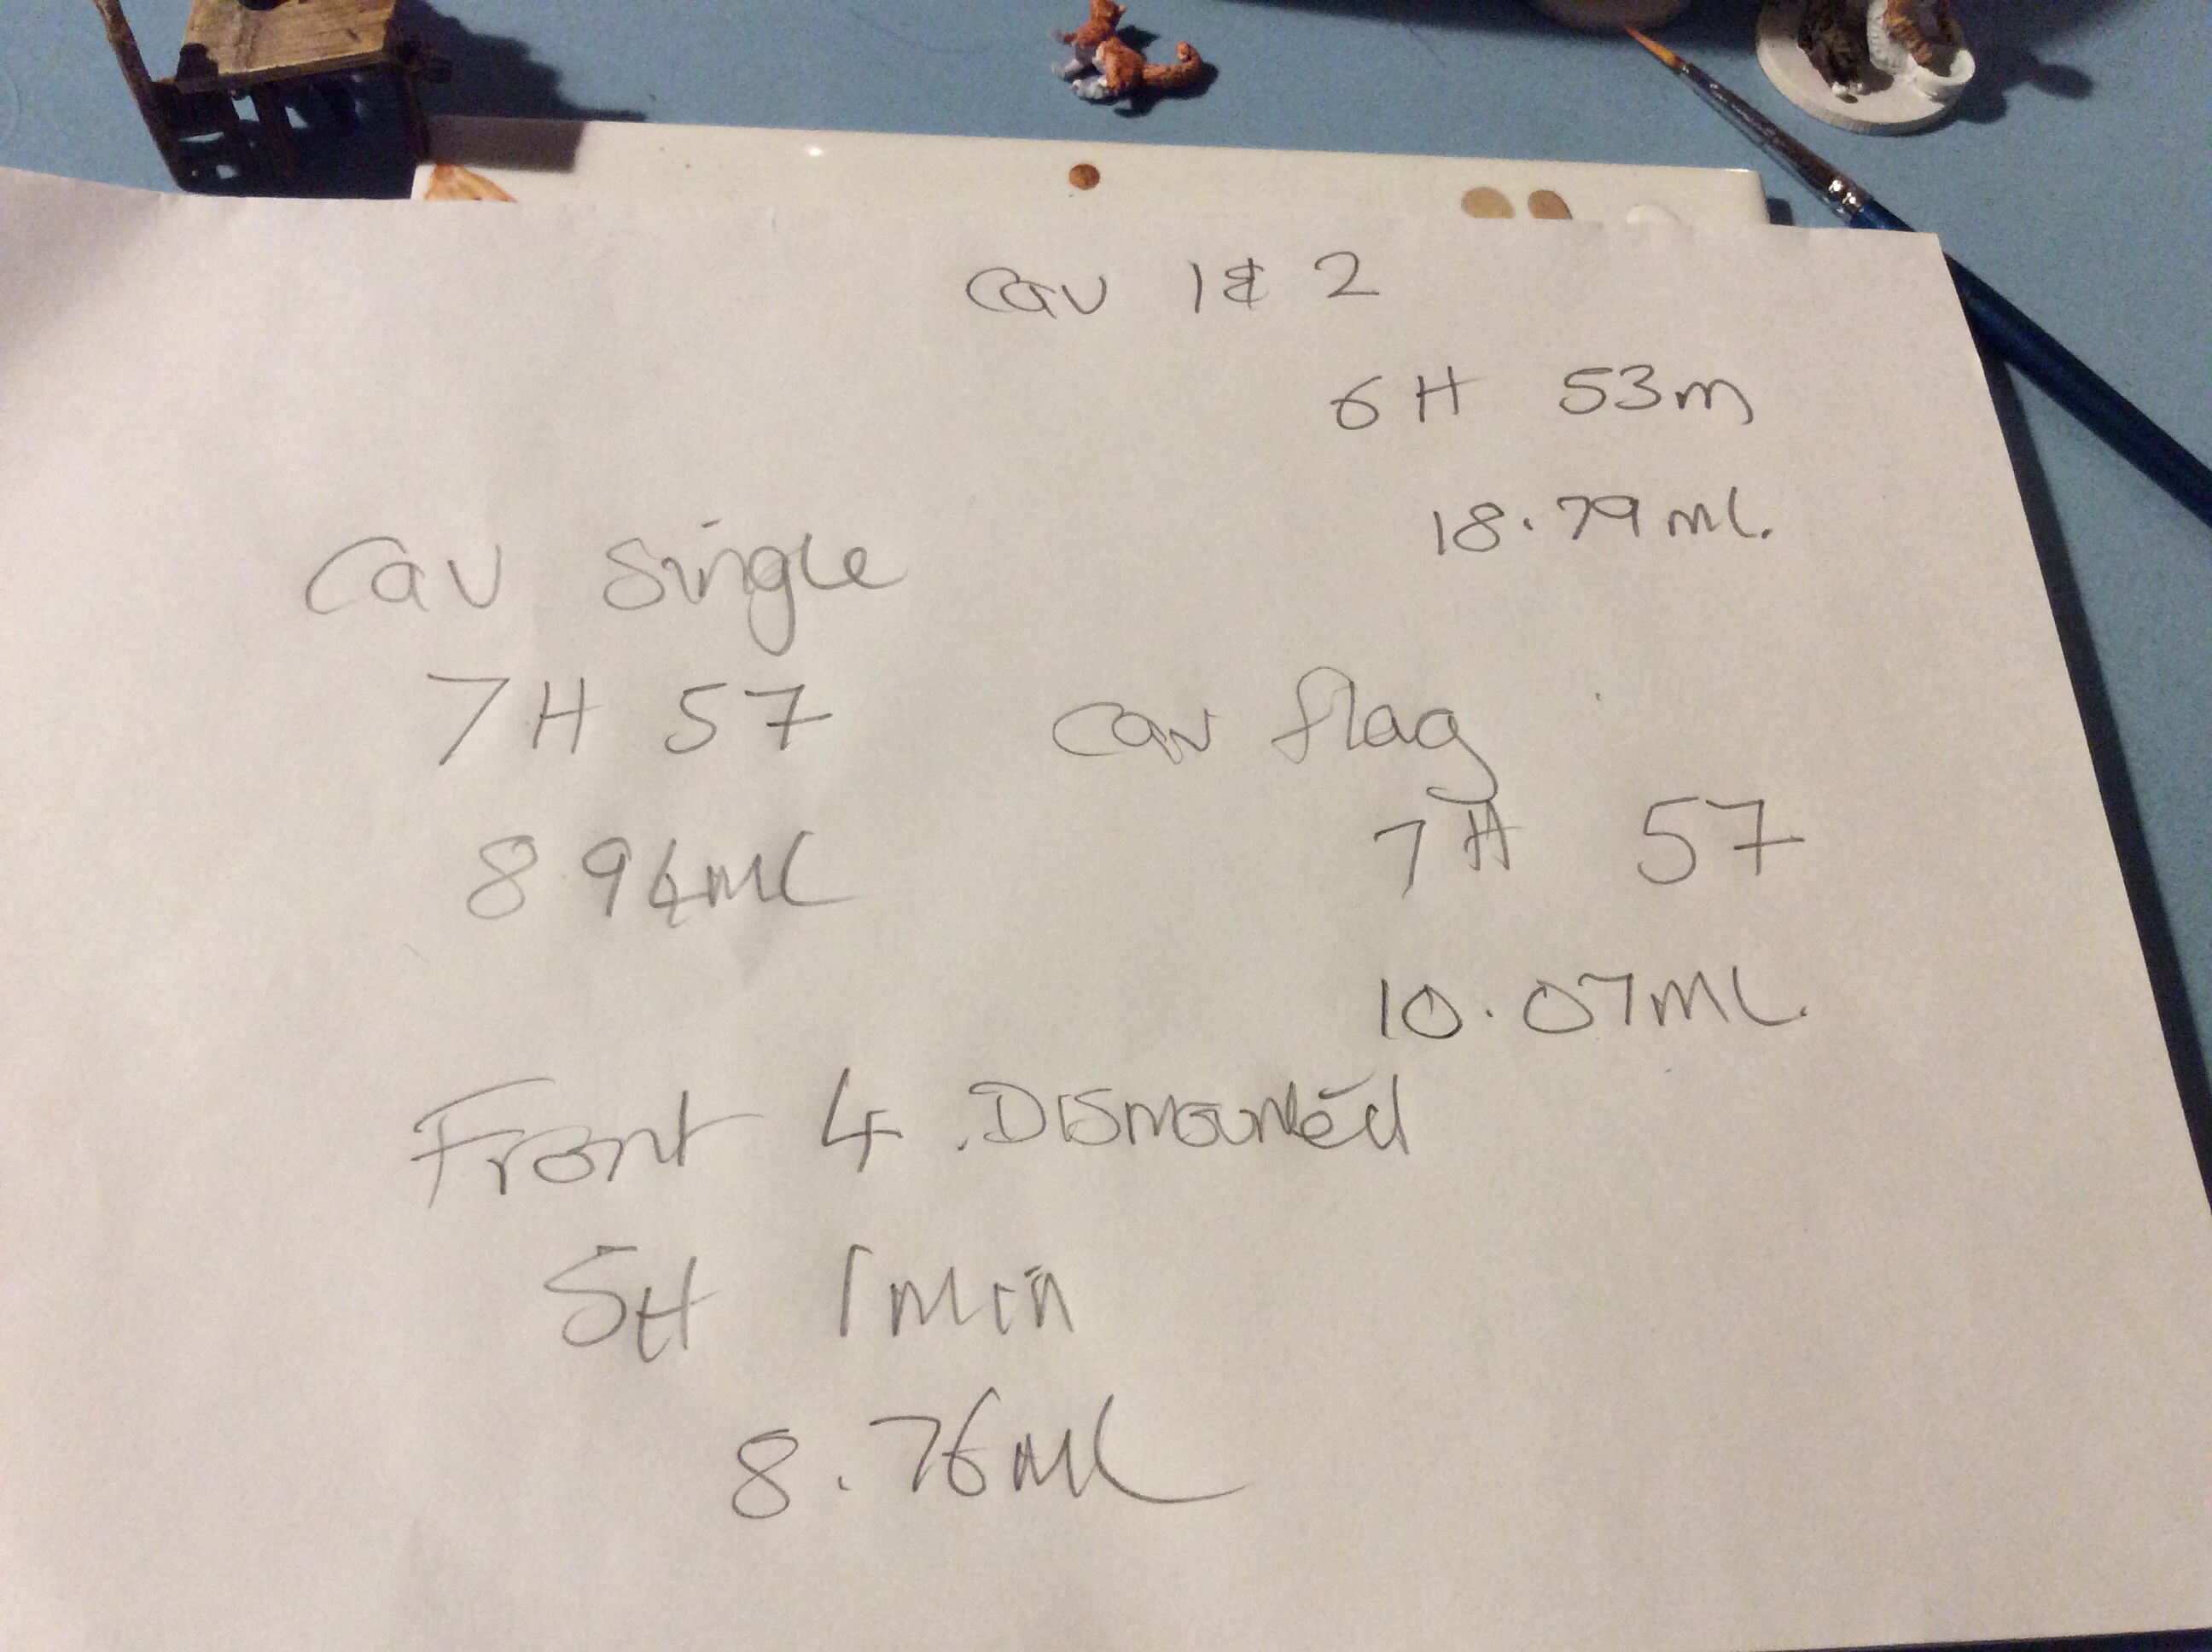 Cav 1 & 2
6H 53m
18.79ml.
Cav Single
7H 57
8.94ml
Cav flag
7H 57
10.07ml.
Front 4 Dismounted
5H 1min
8.76ml